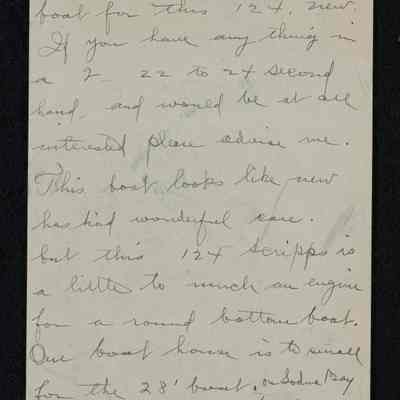 boat for this 124, new.
If you have any thing in
a 2 22 to 24 second
hand, and would be at all
interested please advise me.
This boat looks like new
has had wonderful care.
but this 124 Scripps is
a little to much an engine
for a round bottom boat.
Our boat house is to small
for the 28' boat. on Sodus Bay